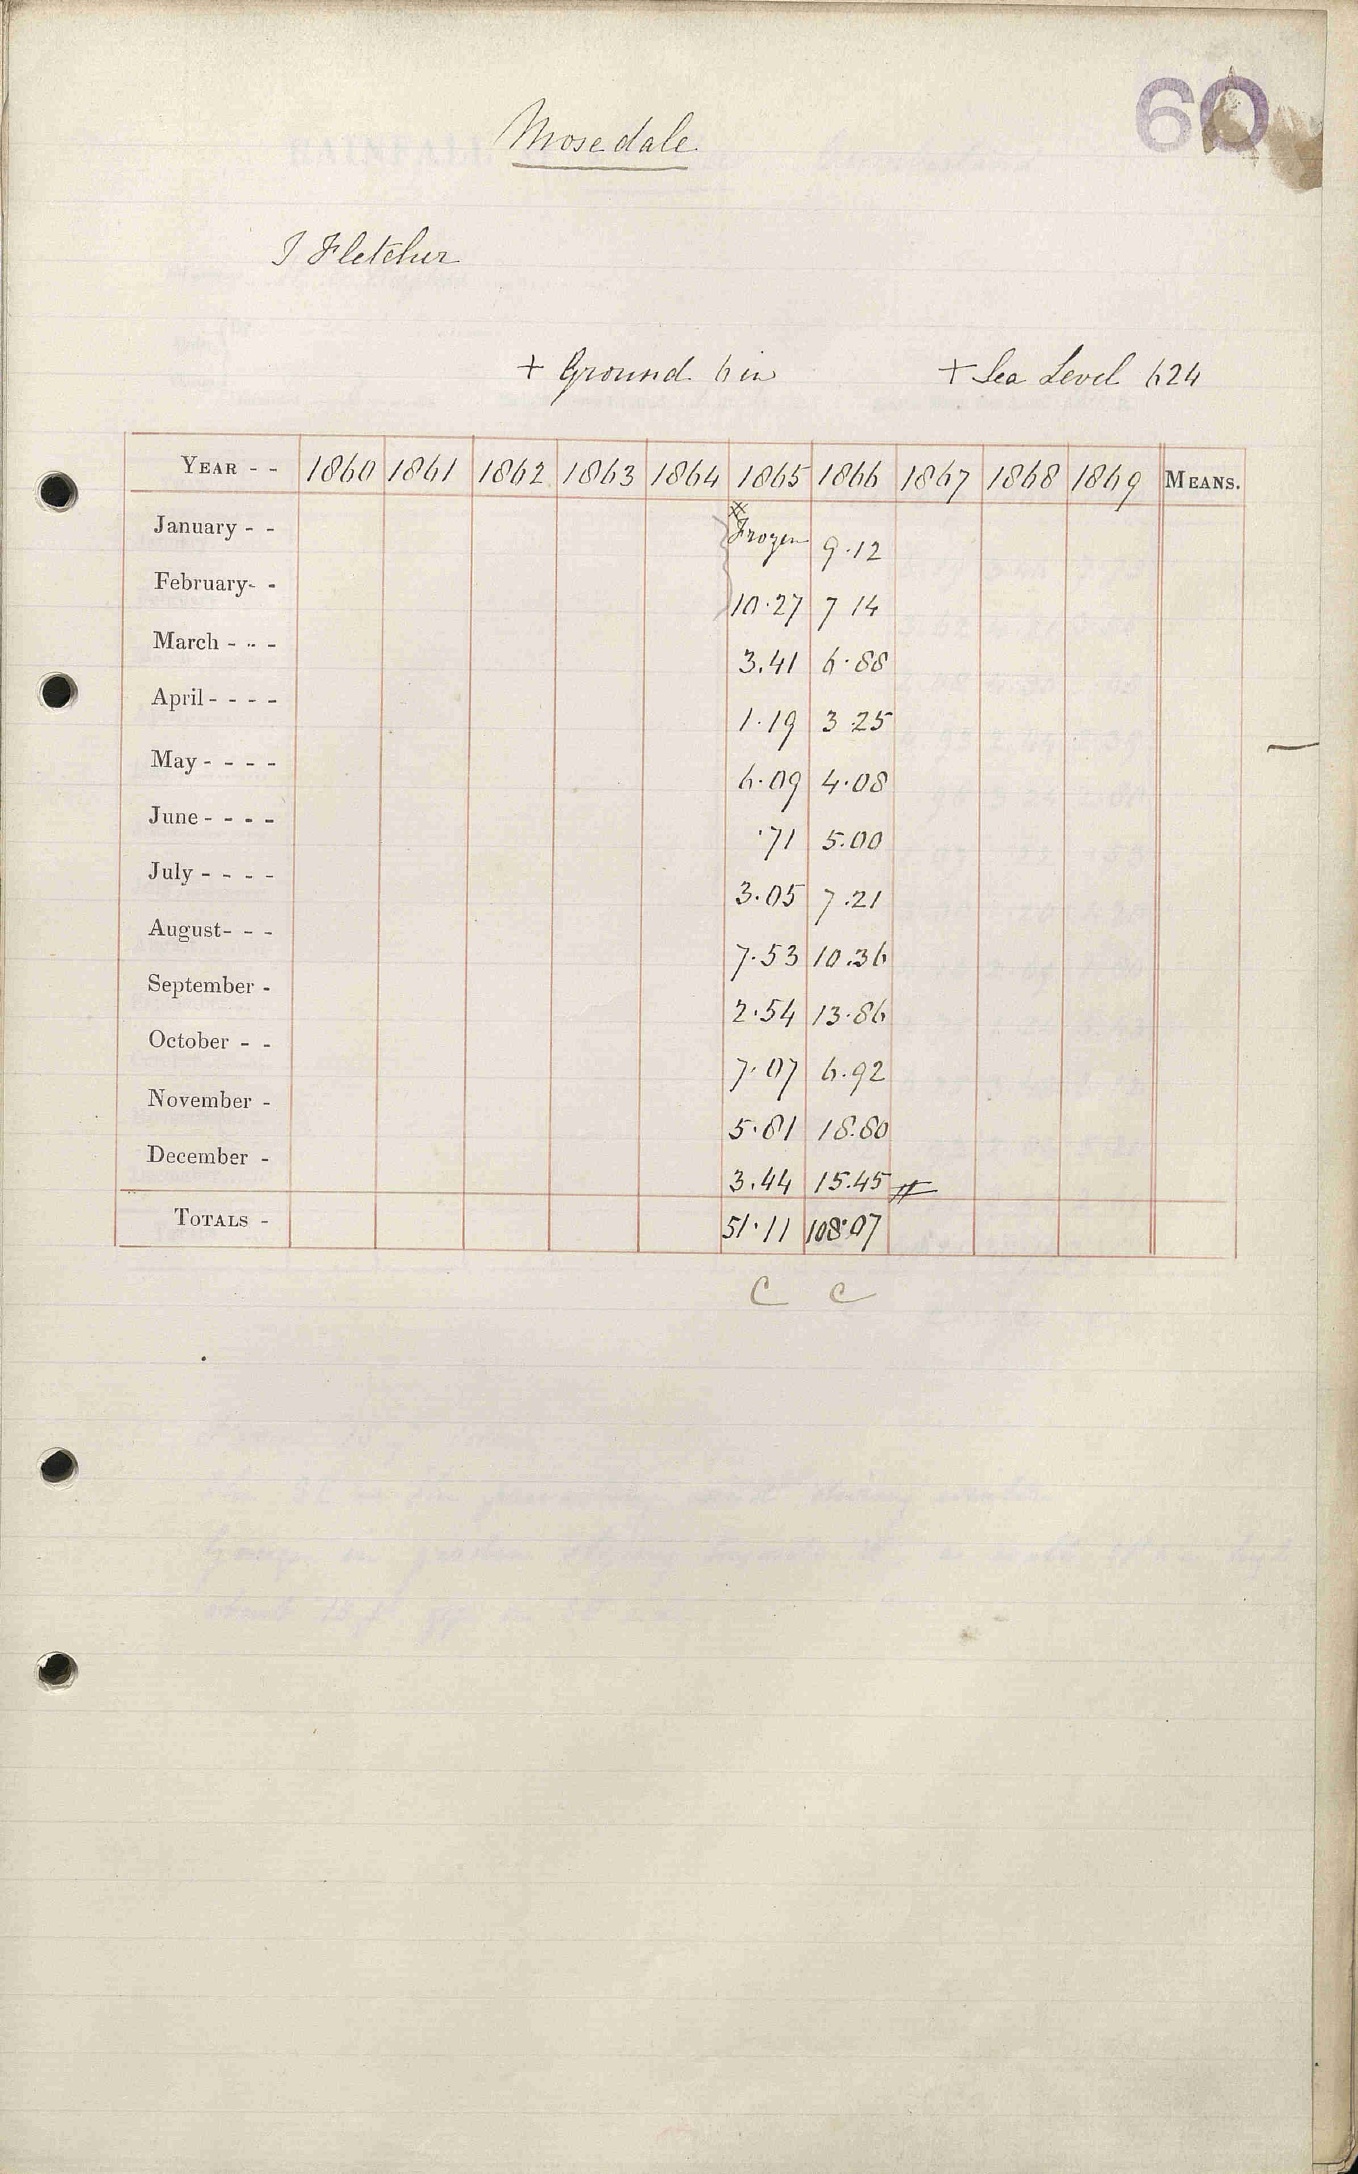 60
Mosedale
I Fletcher
+ Ground 6 in + Sea Level 624
YEAR - - 1860 1861 1862 1863 1864 1865 1866 1867 1868 1869 MEANS.
January - - Frozen 9.12
February- - 10.27 7 14
March - - - 3.41 6.88
April - - - - 1.19 3.25
May - - - - 6.09 4.08
June - - - - .71 5.00
July - - - - 3.05 7.21
August- - - 7.53 10.36
September - 2.54 13.86
October - - 7.07 6.92
November - 5.81 18.80
December - 3.44 15.45
TOTALS - 51.11 108.07
C C